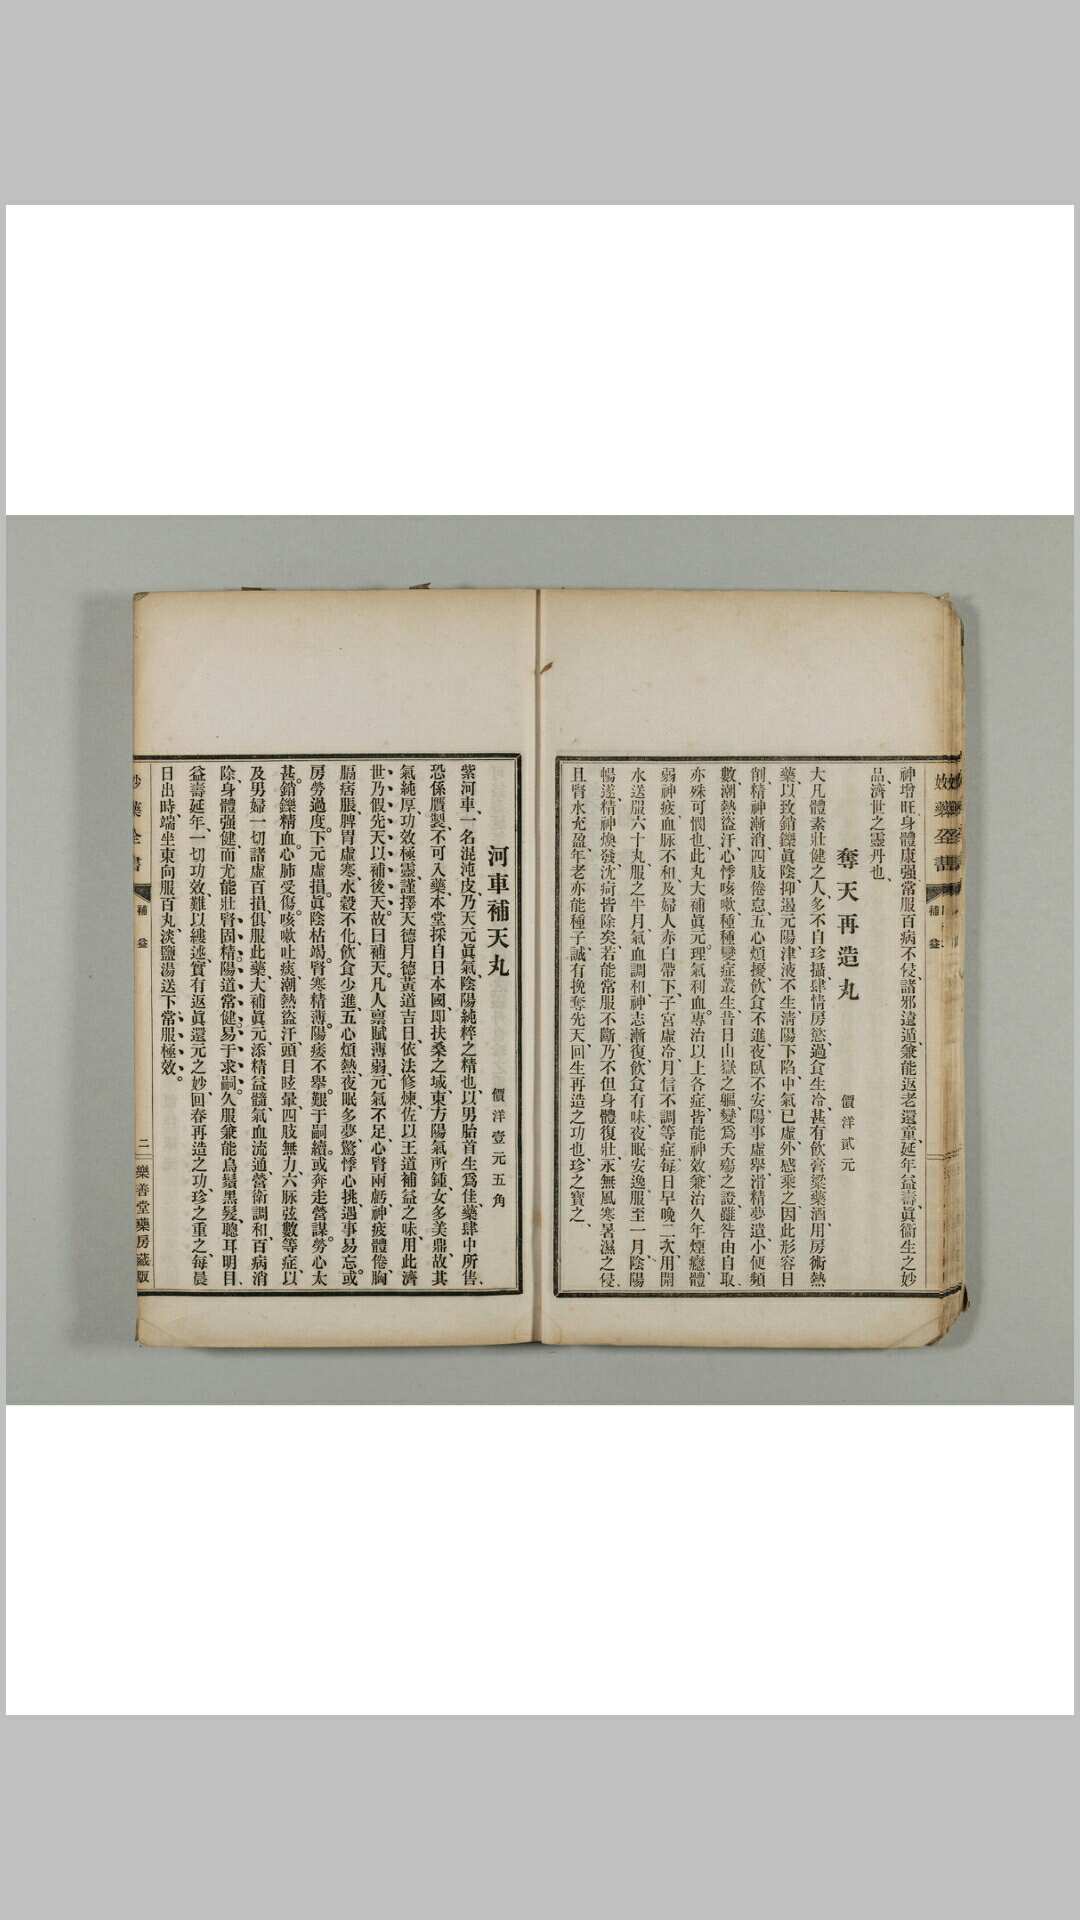 妙藥全書
補益
神增旺、身體康强、常服百病不侵、諸邪遠遁、兼能返老還童、延年益壽、眞衞生之妙
品、濟世之靈丹也、
奪天再造丸
價洋貳元
大凡體素壯健之人、多不自珍攝、肆情房慾、過食生冷、甚有飲膏粱藥酒、用房術熱
藥、以致銷鑠眞陰、抑遏元陽、津液不生、淸陽下陷、中氣已虛、外感乘之、因此形容日
削、精神漸消、四肢倦怠、五心煩擾、飲食不進、夜臥不安、陽事虛舉、滑精夢遺、小便頻
數、潮熱盜汗、心悸咳嗽、種種變症叢生、昔日山嶽之軀、變爲夭殤之證、雖咎由自取、
亦殊可憫也、此丸大補眞元。理氣利血。專治以上各症、皆能神效、兼治久年煙癮、體
弱神疲、血脉不和、及婦人赤白帶下、子宮虛冷、月信不調等症、每日早晚二次、用開
水送服六十丸、服之半月、氣血調和、神志漸復、飲食有味、夜眠安逸、服至一月、陰陽
暢遂、精神煥發、沈疴皆除矣、若能常服不斷、乃不但身體復壯、永無風寒暑濕之侵、
且腎水充盈、年老亦能種子、誠有挽奪先天回生再造之功也、珍之寶之、
河車補天丸
價洋壹元五角
紫河車、一名混沌皮、乃天元眞氣、陰陽純粹之精也、以男胎首生爲佳、藥肆中所售、
恐係贋製、不可入藥、本堂採自日本國、卽扶桑之域、東方陽氣所鍾、女多美鼎、故其
氣純厚、功效極靈、謹擇天德月德黃道吉日、依法修煉、佐以王道補益之味、用此濟
世、乃假先天以補後天。故曰補天。凡人禀賦薄弱、元氣不足、心腎兩虧、神疲體倦、胸
膈痞脹、脾胃虛寒、水穀不化、飲食少進、五心煩熱、夜眠多夢、驚悸心挑、遇事易忘。或
房勞過度。下元虛損。眞陰枯竭。腎寒精薄。陽痿不舉。艱于嗣續。或奔走營謀。勞心太
甚。銷鑠精血。心肺受傷。咳嗽吐痰、潮熱盜汗、頭目眩暈、四肢無力、六脉弦數等症、以
及男婦一切諸虛百損、俱服此藥、大補眞元、添精益髓、氣血流通、營衞調和、百病消
除、身體强健、而尤能壯腎固精。陽道常健。易于求嗣。久服兼能烏鬚黑髮、聰耳明目、
益壽延年、一切功效、難以縷述、實有返眞還元之妙、回春再造之功、珍之重之、每晨
日出時、端坐東向、服百丸、淡鹽湯送下、常服極效。
妙藥全書
補益
二
樂善堂藥房藏版